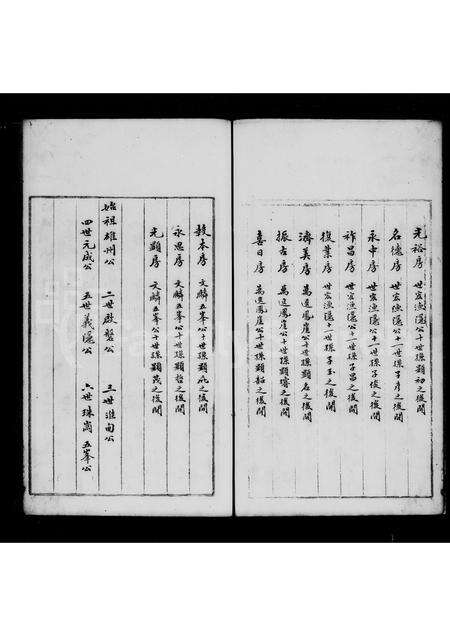 光裕房 世宏漁隱公十世孫顯初之後開
名德房 世宏漁隱公十一世孫子彥之後開
永申房 世宏漁隱公十一世孫子俊之後開
祚昌房 世宏漁隱公十一世孫子昌之後開
復業房 世宏漁隱十一世孫子玉之後開
濟美房 萬選鳳崖公十世孫顯名之後開
振古房 萬選鳳崖公十世孫顯 之後開
喜日房 萬選鳳崖公十世孫顯 之後開
敦本房 文麟五峯公十世孫顯 之後開
永思房 文麟五峯公十世孫顯哲之後開
光顯房 文麟五峯公十世孫顯茂之後開
始祖雄州公 二世啟盤公 三世淮甸公
四世元威公 五世義隱公 六世珠崗 五峯公